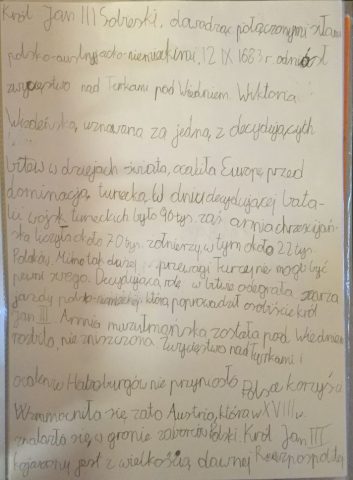 Król Jan III Sobieski, dowodząc połączonymi siłami
polsko-austryjacko-niemieckimi, 12 IX 1683 r. odniósł
zwycięstwo nad Turkami pod Wiedniem. Wiktoria
Wiedeńska, uznawana za jedną z decydujących
bitew w dziejach świata, ocaliła Europę przed
dominacją turecką. W dniu decydującej bata-
lii wojsk tureckich było 90 tyś. zaś armia chrześcijań-
ska liczyła około 70 tyś. żołnierzy, w tym około 22 tyś.
Polaków. Mimo tak dużej przewagi Turcy nie mogli być
pewni swego. Decydującą rolę w bitwie odegrała szarża
jazdy polsko-niemieckiej, którą poprowadził osobiście król
Jan III. Armia muzułmańska została pod Wiedniem
rozbita, nie zniszczona. Zwycięstwo nad Turkami i
ocalenie Habsburgów nie przyniosło Polsce korzyści
Wzmocniła się zato Austria, która w XVIII w.
znalazła się w gronie zaborców Polski. Król Jan III
kojarzony jest z wielkością dawnej Rzeczpospolitej